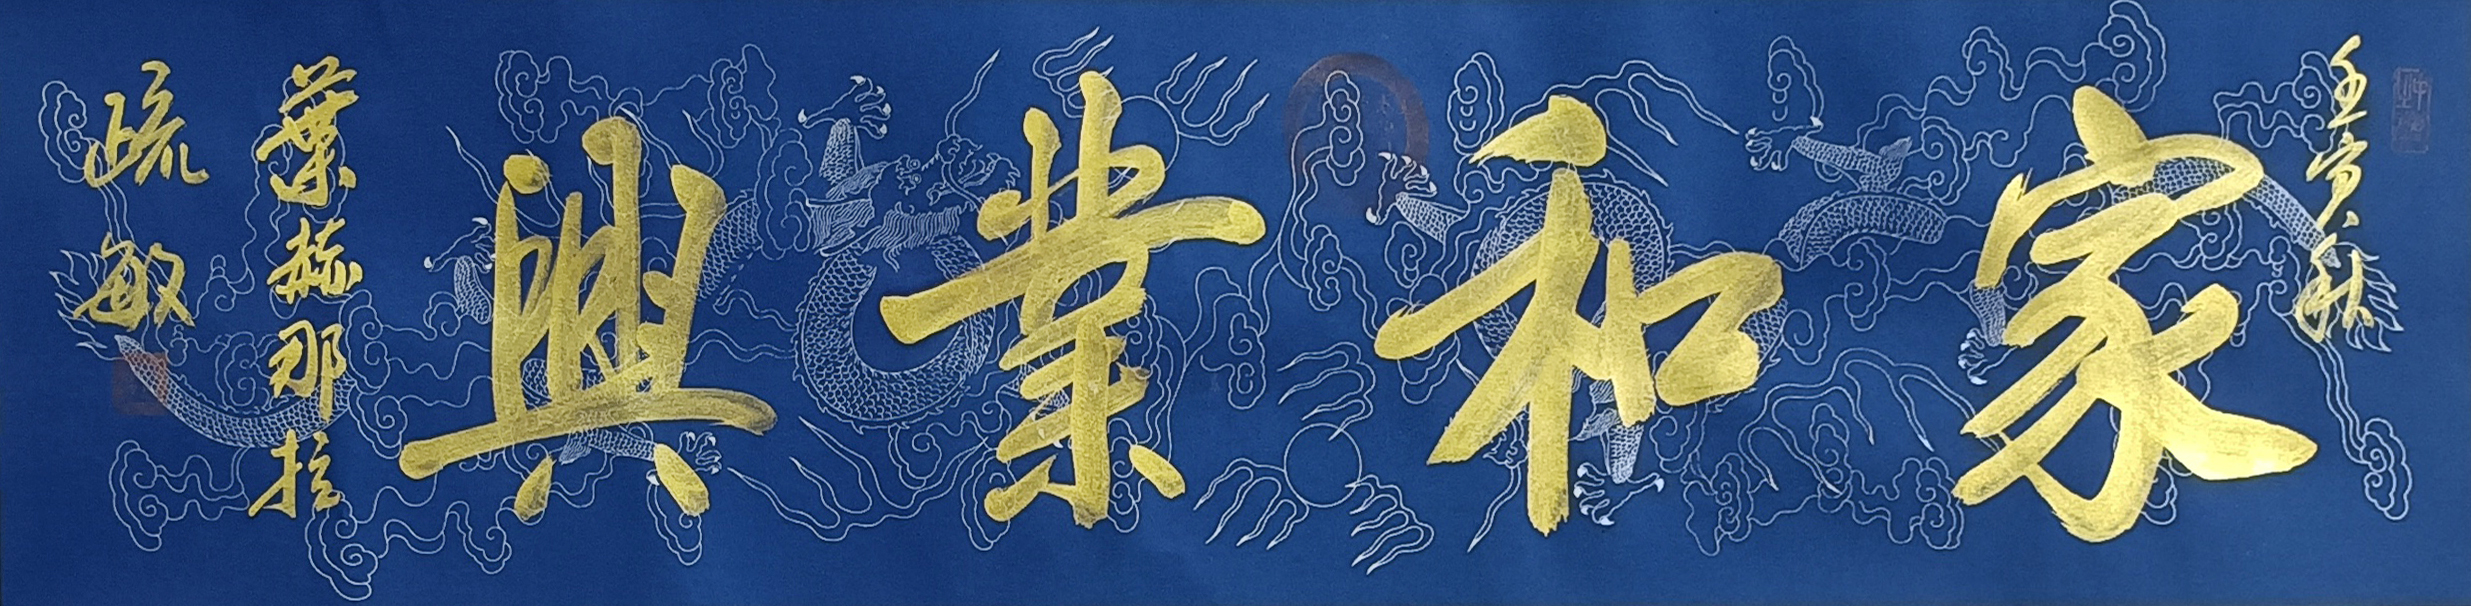 壬寅秋
家和業興
葉赫那拉
疏敏